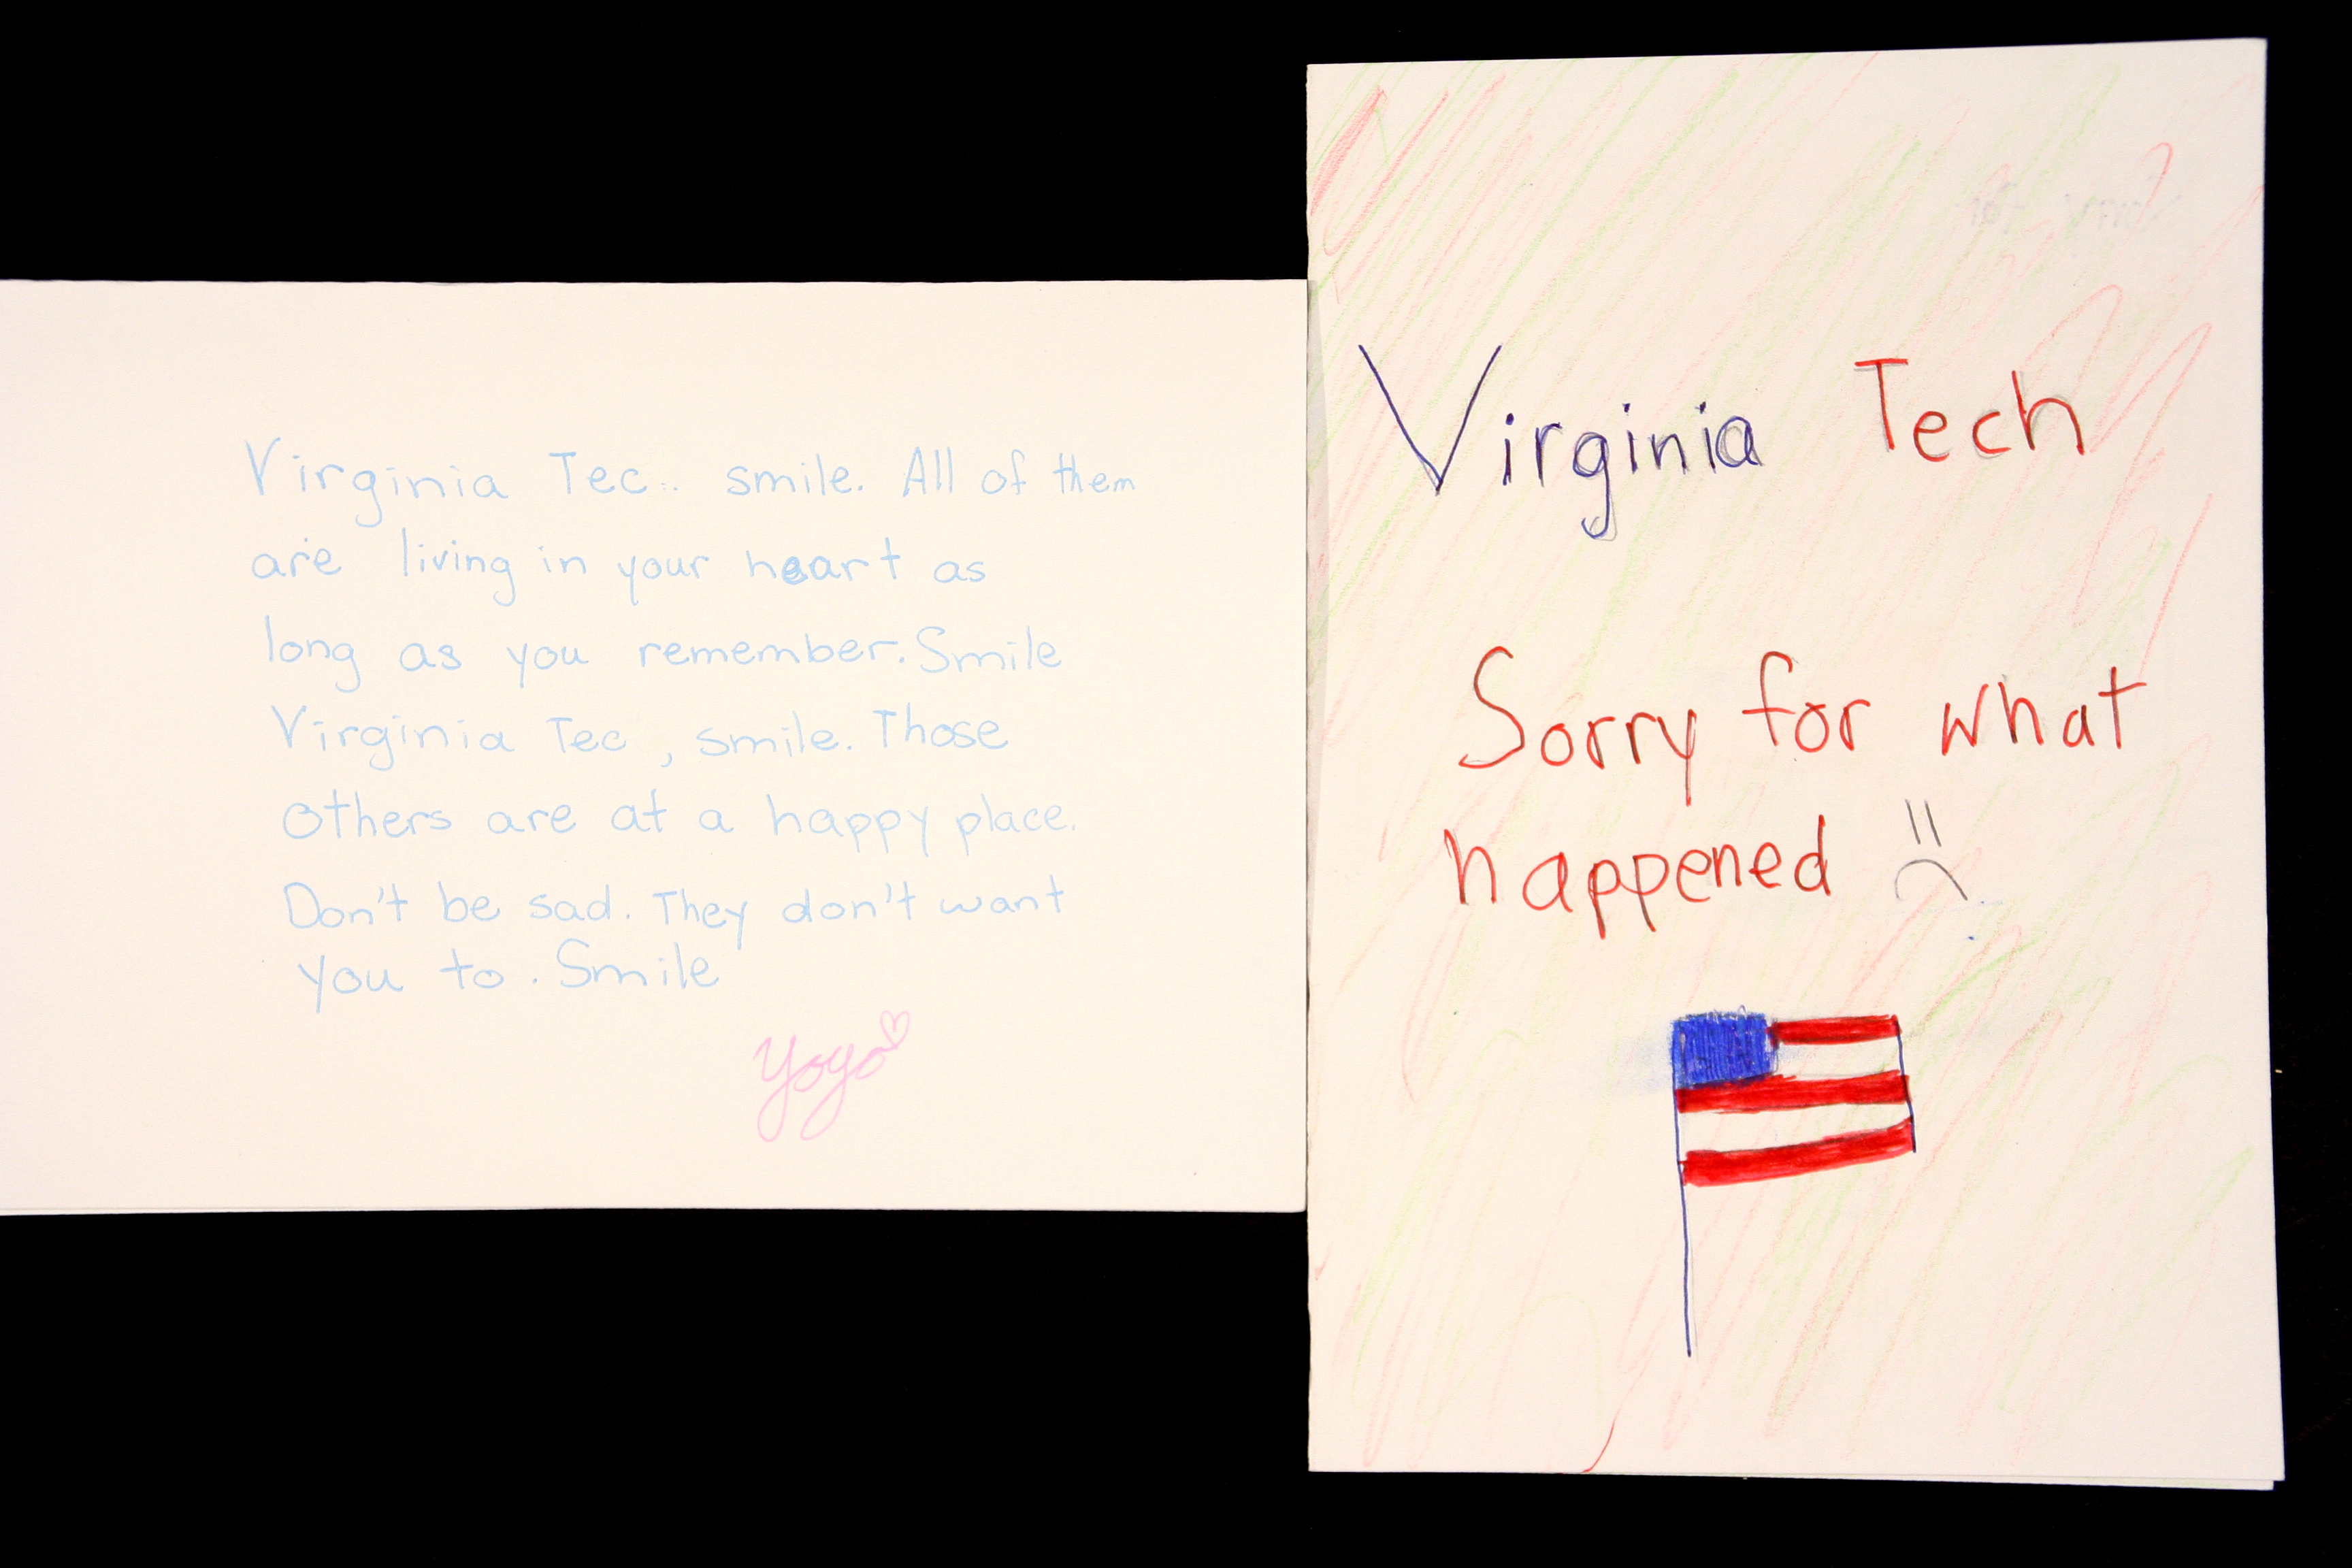 Virginia Tec.. smile. All of them
are living in your heart as
long as you remember. Smile
Virginia Tec , smile. Those
others are at a happy place.
Don't be sad. They don't want
you to. Smile
Yoyo
Virginia Tech
Sorry for what
happened